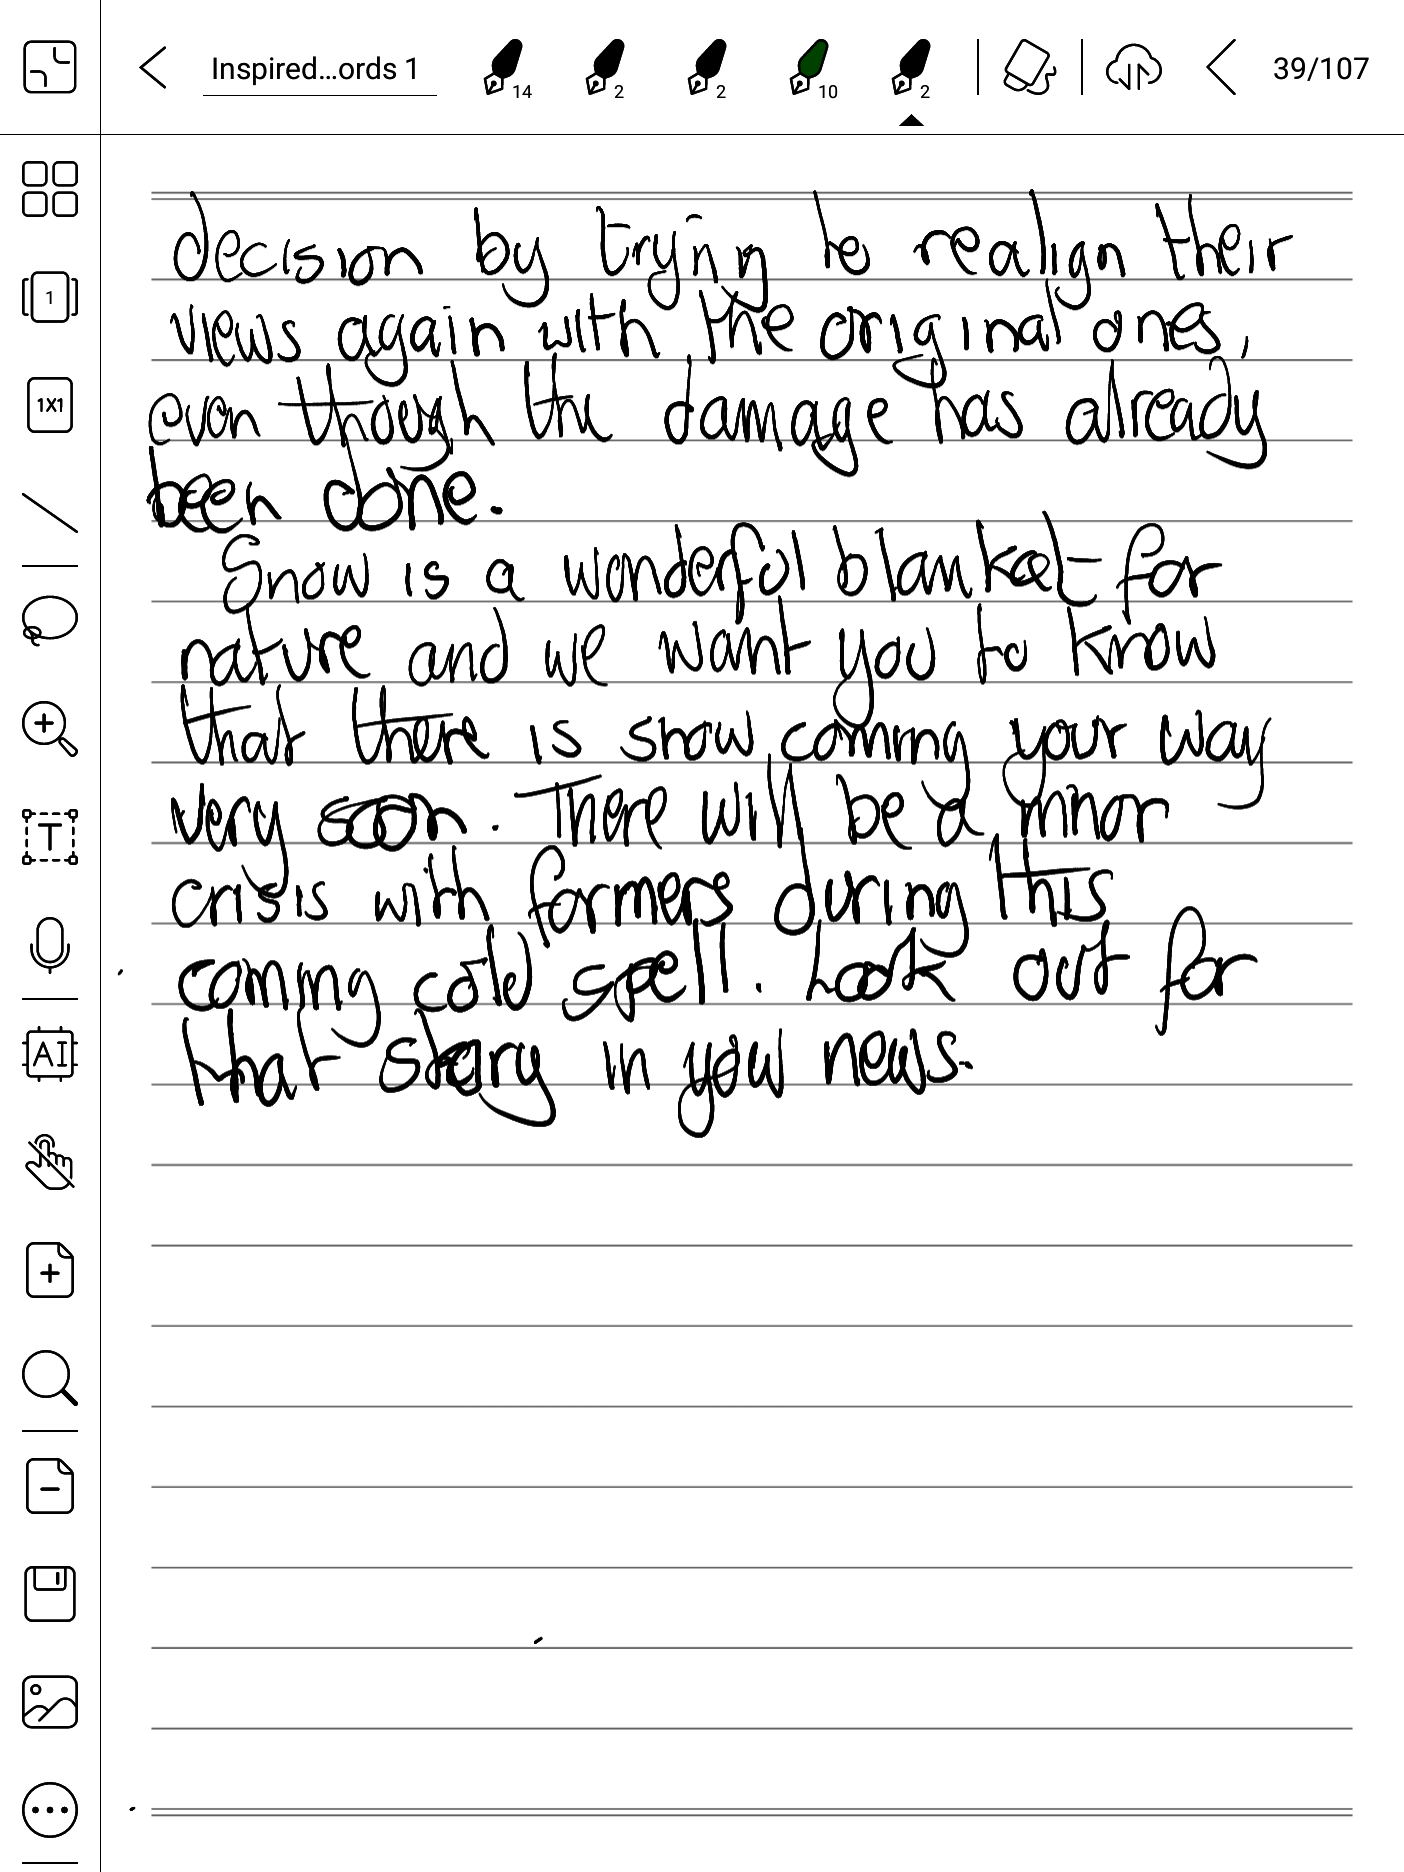 Inspired...ords 1
14
2
2
10
2
39/107
1
1X1
T
AI
decision by tryinn to realign their
views again with the original ones,
even though the damage has already
been done.
Snow is a wonderful blanket for
nature and we want you to know
that there is snow coming your way
very soon. There will be a minor
crisis with formers during this
coming cold spell. Look out for
that story in your news.